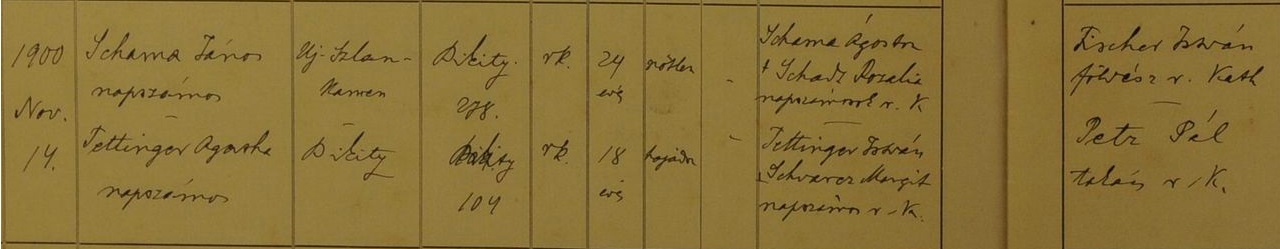 1900
Nov.
14.
Schama János
napszámos
Tettinger Agostha
napszámos
Uj-Szlan-
kamen
Bikity
Bikity.
278.
Bikity
104
rk.
rk.
24
éves
18
éves
nőtlen
hajadon
Schama Ágoston
† Schadz Rozalia
napszámosok r. K
Tettinger István
Schvarcz Margit
napszámos r. K.
Fischer István
földész r. Kath
Petz Pál
takács r. K.